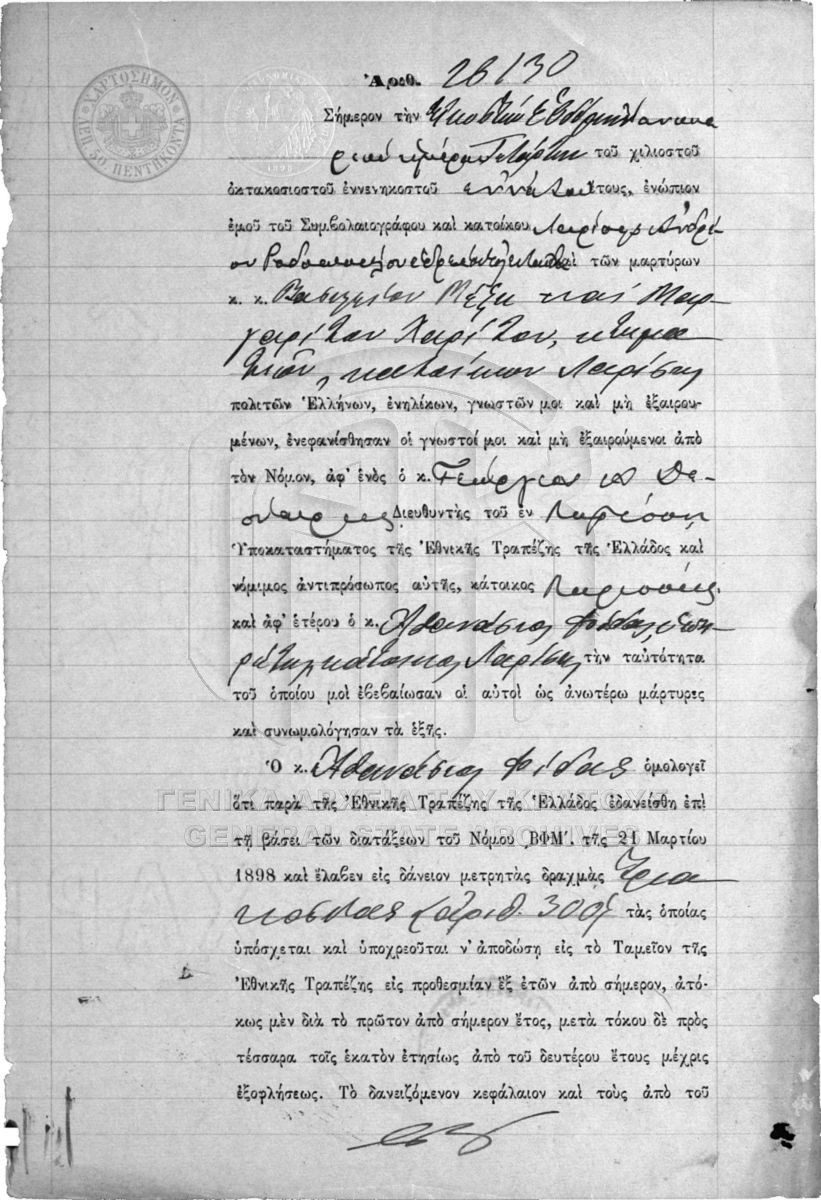 ΧΑΡΤΟΣΗΜΟΝ
ΛΕΠ. 50 ΠΕΝΤΗΚΟΝΤΑ
Ἀριθ. 26130
Σήμερον τὴν Εἰκοστὴν Ἑβδόμην Ἰανουα
ρίου ἡμέραν Τετάρτην τοῦ χιλιοστοῦ
ὀκτακοσιοστοῦ ἐννενηκοστοῦ ἐννάτου ἔτους, ἐνώπιον
ἐμοῦ τοῦ Συμβολαιογράφου καὶ κατοίκου Λαρίσσης Ἀνδρέ
ου Ροδοπούλου καὶ τῶν μαρτύρων
κ. κ. Βασιλείου Μέξη καὶ Μαρ-
γαρίτου Χαρίτου, κτημα
τιῶν, κατοίκων Λαρίσης
πολιτῶν Ἑλλήνων, ἐνηλίκων, γνωστῶν μοι καὶ μὴ ἐξαιρου-
μένων, ἐνεφανίσθησαν οἱ γνωστοί μοι καὶ μὴ ἐξαιρούμενοι ἀπὸ
τὸν Νόμον, ἀφ' ἑνὸς ὁ κ. Γεώργιος
Διευθυντὴς τοῦ ἐν Λαρίσσῃ
Ὑποκαταστήματος τῆς Ἐθνικῆς Τραπέζης τῆς Ἑλλάδος καὶ
νόμιμος ἀντιπρόσωπος αὐτῆς, κάτοικος Λαρίσσης
καὶ ἀφ' ἑτέρου ὁ κ. Ἀθανάσιος Φίδας, ὑπη-
ρέτης κάτοικος Λαρίσης τὴν ταὐτότητα
τοῦ ὁποίου μοὶ ἐβεβαίωσαν οἱ αὐτοὶ ὡς ἀνωτέρω μάρτυρες
καὶ συνωμολόγησαν τὰ ἑξῆς.
Ὁ κ. Ἀθανάσιος Φίδας ὁμολογεῖ
ΓΕΝΙΚΑ ΑΡΧΕΙΑ ΤΟΥ ΚΡΑΤΟΥΣ
ὅτι παρὰ τῆς Ἐθνικῆς Τραπέζης τῆς Ἑλλάδος ἐδανείσθη ἐπὶ
GENERAL STATE ARCHIVES
τῇ βάσει τῶν διατάξεων τοῦ Νόμου ͵ΒΦΜ΄. τῆς 21 Μαρτίου
1898 καὶ ἔλαβεν εἰς δάνειον μετρητὰς δραχμὰς Τρια
κοσίας (ἀριθ. 300) τὰς ὁποίας
ὑπόσχεται καὶ ὑποχρεοῦται ν' ἀποδώσῃ εἰς τὸ Ταμεῖον τῆς
Ἐθνικῆς Τραπέζης εἰς προθεσμίαν ἓξ ἐτῶν ἀπὸ σήμερον, ἀτό-
κως μὲν διὰ τὸ πρῶτον ἀπὸ σήμερον ἔτος, μετὰ τόκου δὲ πρὸς
τέσσαρα τοῖς ἑκατὸν ἐτησίως ἀπὸ τοῦ δευτέρου ἔτους μέχρις
ἐξοφλήσεως. Τὸ δανειζόμενον κεφάλαιον καὶ τοὺς ἀπὸ τοῦ